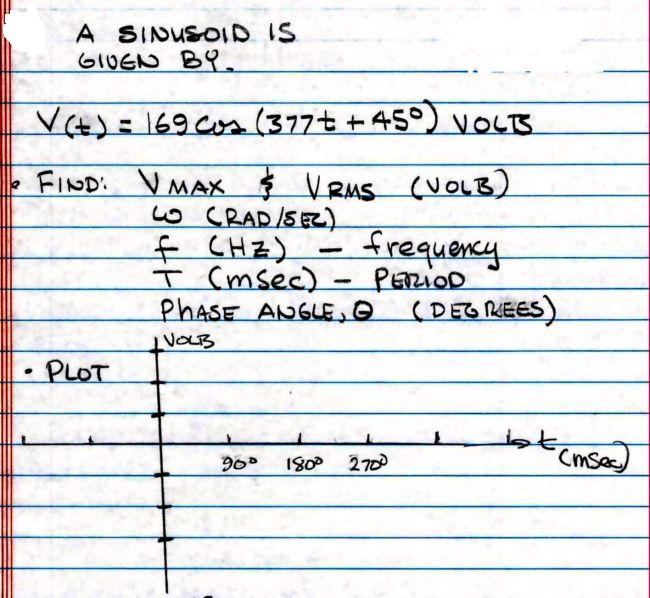 A SINUSOID IS
GIVEN BY.
V(t) = 169 cos (377t + 45°) VOLTS
• FIND: V MAX & V RMS (VOLTS)
ω (RAD/SEC)
f (HZ) - frequency
T (msec) - PERIOD
PHASE ANGLE, θ (DEGREES)
VOLTS
• PLOT
90° 180° 270°
t (msec)